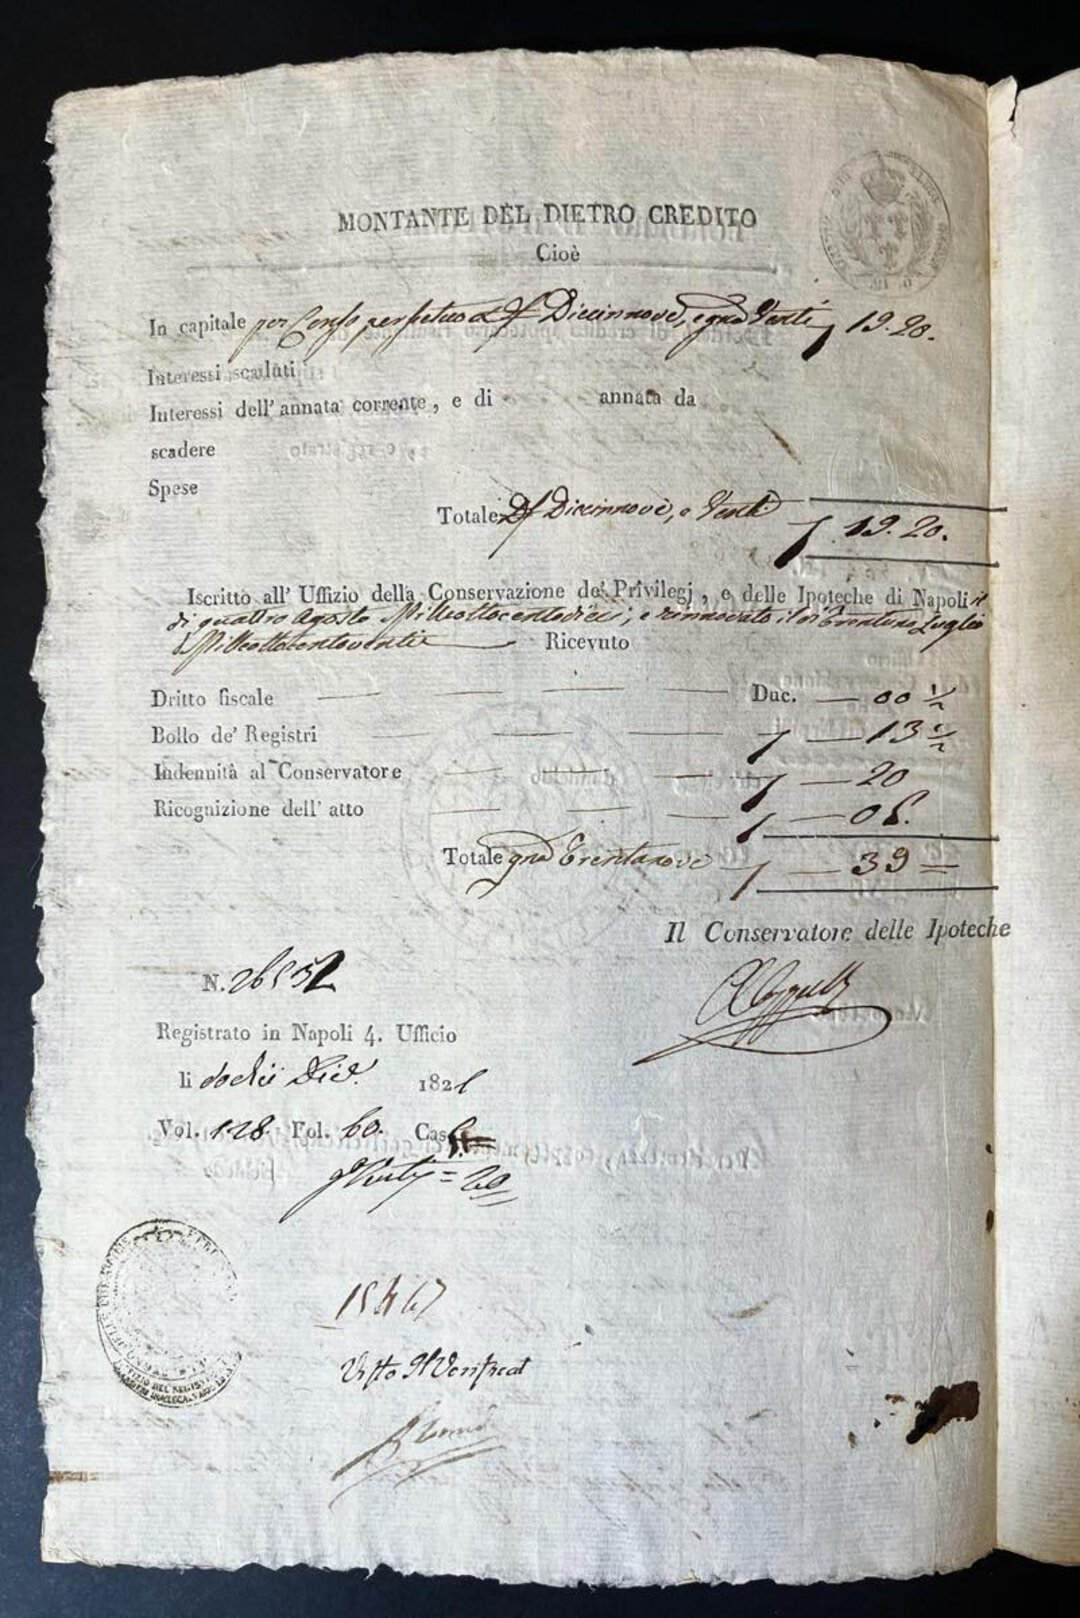 MONTANTE DEL DIETRO CREDITO
Cioè
In capitale per Censo perpetuo D. Diecinnove, e gna Venti 19. 20.
Interessi scaduti
Interessi dell' annata corrente, e di annata da
scadere
Spese
Totale D. Diecinnove, e Venti 19. 20.
Iscritto all' Uffizio della Conservazione de' Privilegj, e delle Ipoteche di Napoli il
di quattro Agosto Milleottocentodieci, e rinnovato il dì Trentuno Luglio
Milleottocentoventi Ricevuto
Dritto fiscale Duc. — 00 ½
Bollo de' Registri — 13 ½
Indennità al Conservatore — 20
Ricognizione dell' atto — 05.
Totale gna Trentanove — 39
Il Conservatore delle Ipoteche
N.
Registrato in Napoli 4. Ufficio
li dodici Dic. 182
Vol. 128. Fol. 60. Cas.
Venti = 20
Visto Il Verificat